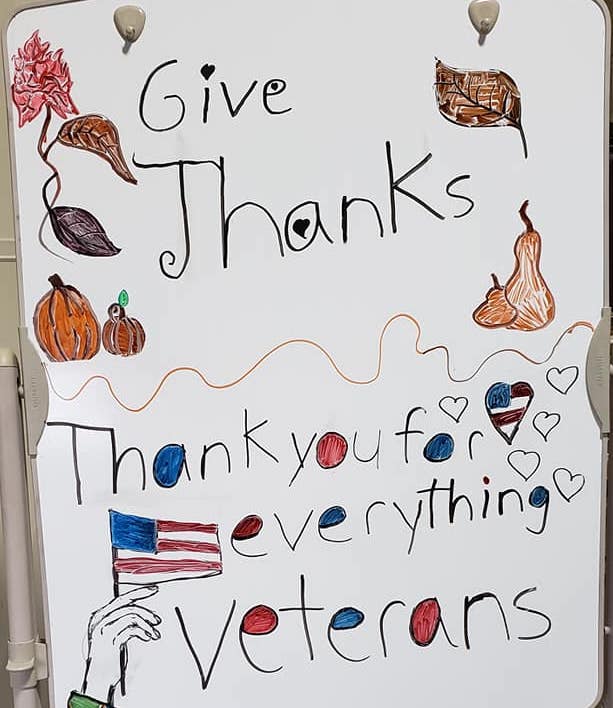 Give
Thanks
Thank you for
everything
veterans